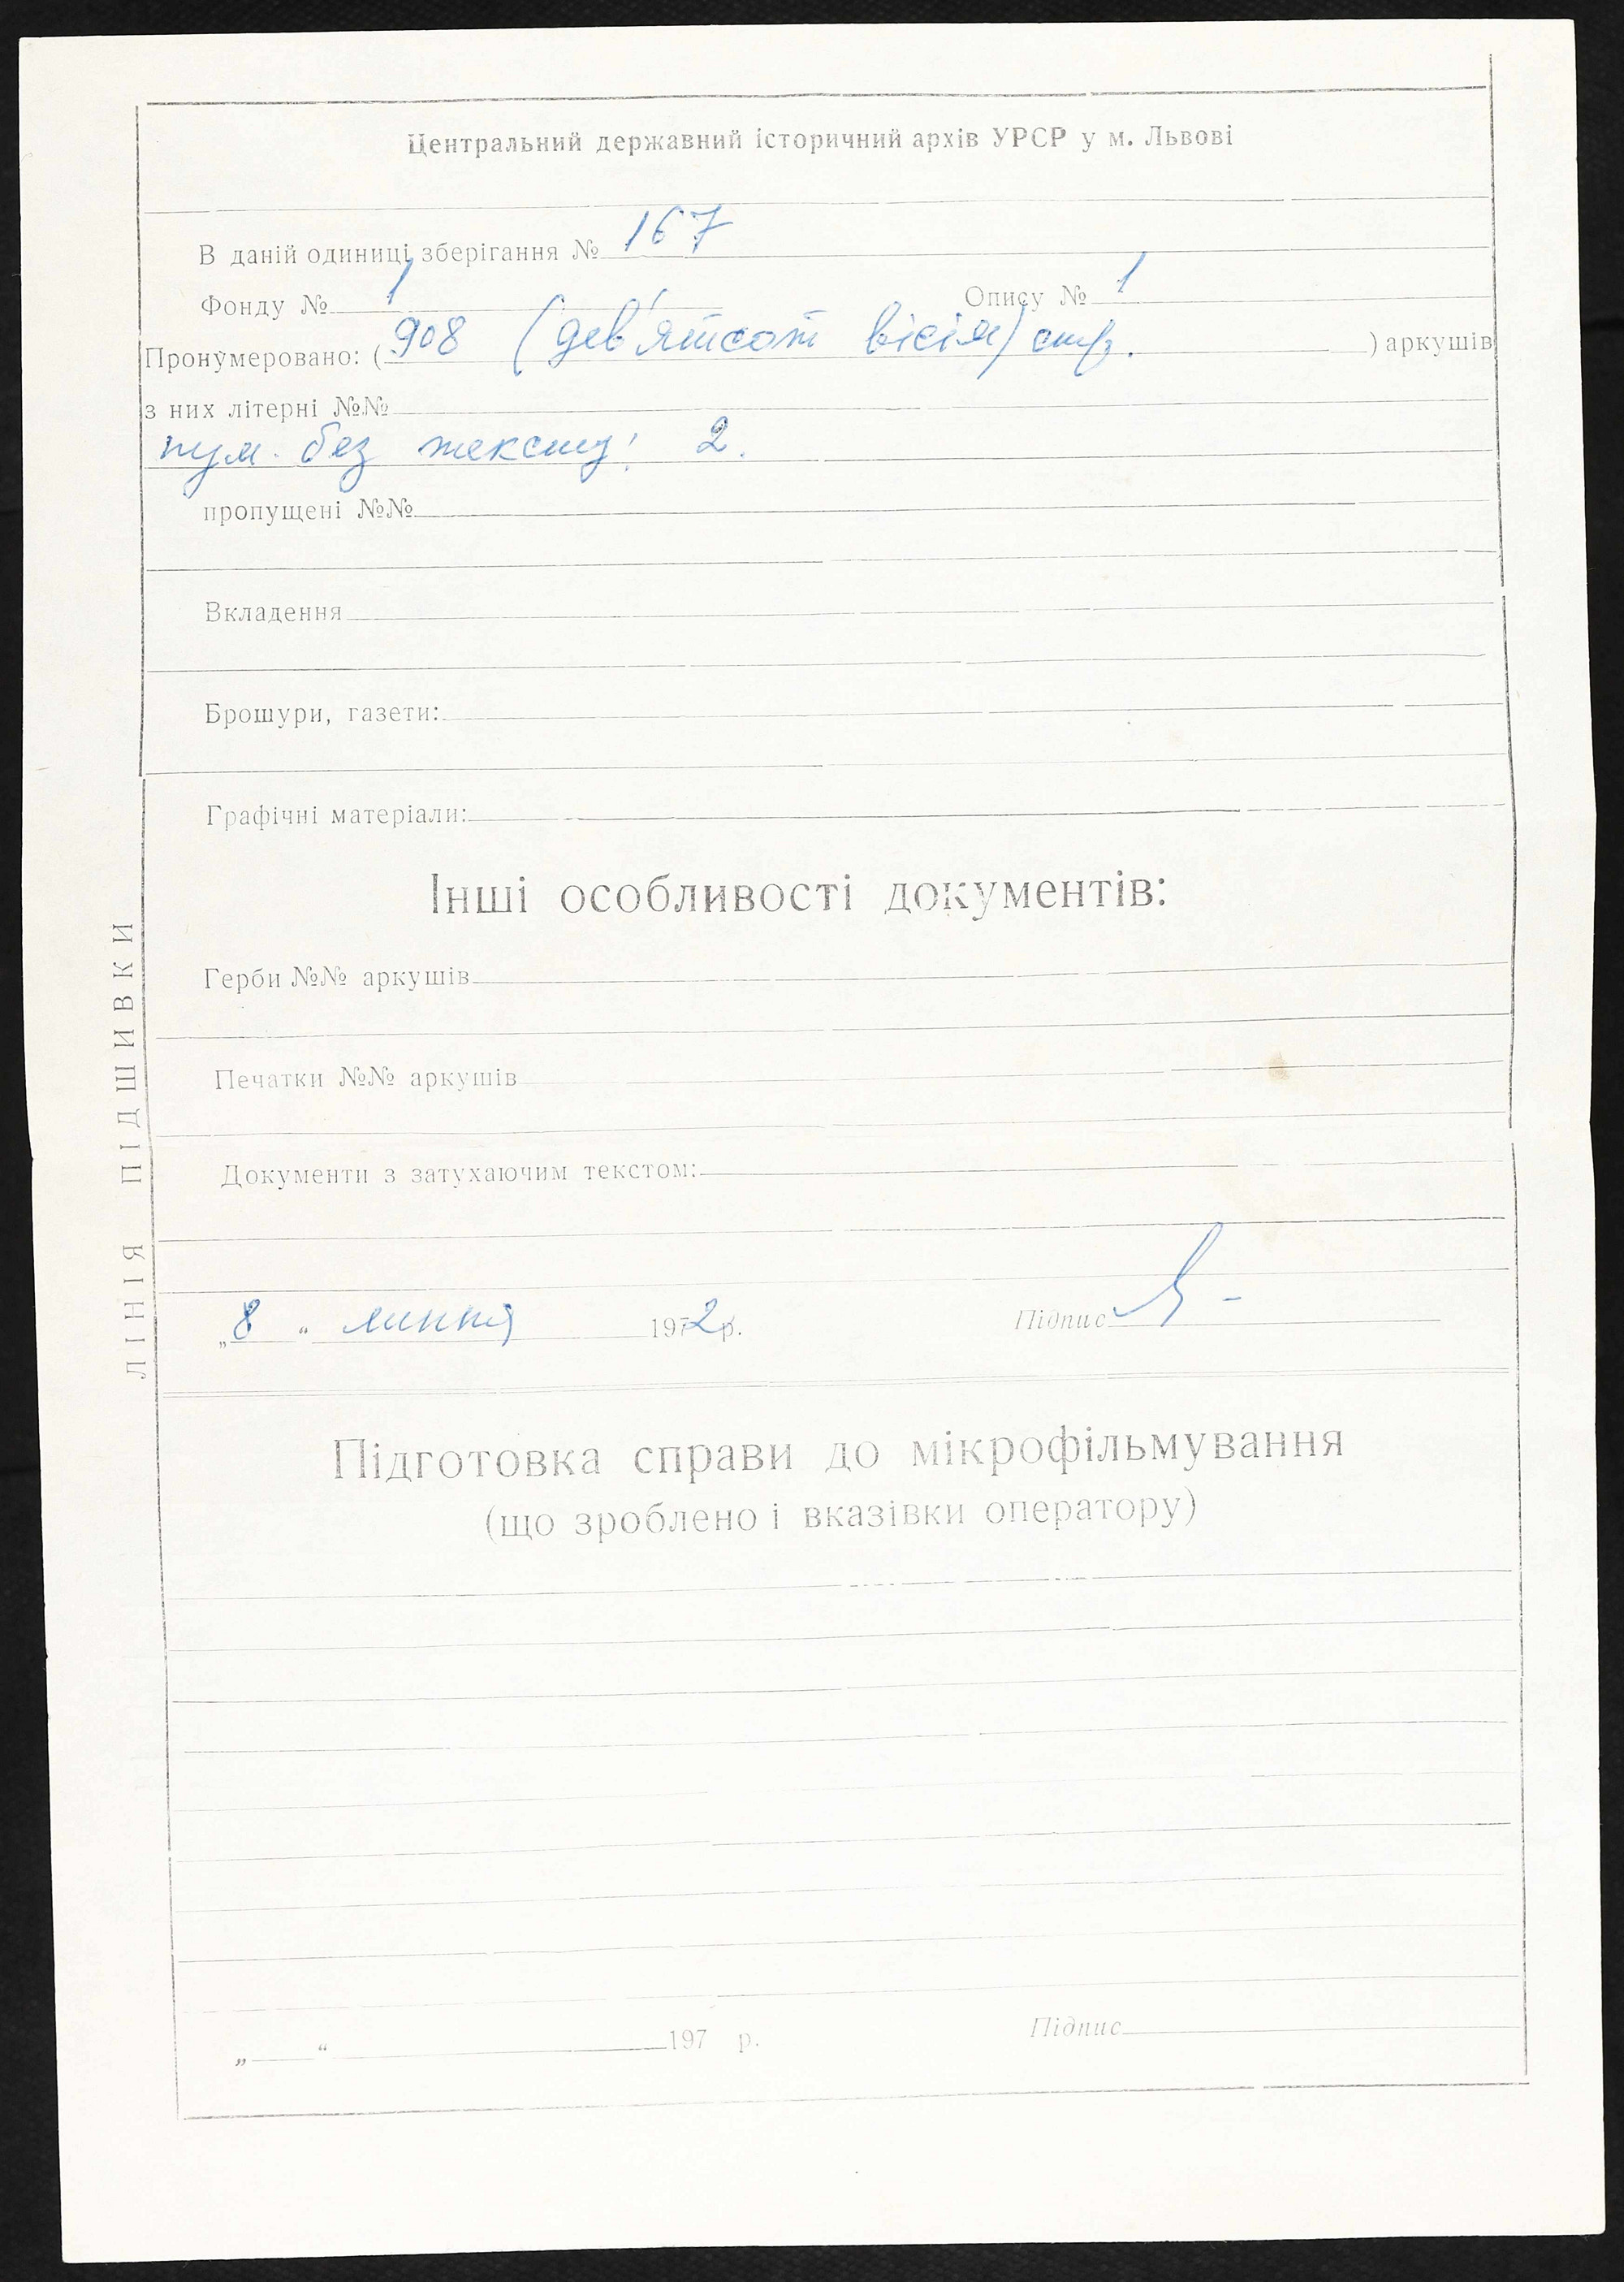 Центральний державний історичний архів УРСР у м. Львові
В даній одиниці зберігання № 167
Фонду № 1 Опису № 1
Пронумеровано: ( 908 (дев'ятсот вісім) стр. ) аркушів
з них літерні №№
нум. без тексту: 2.
пропущені №№
Вкладення
Брошури, газети:
Графічні матеріали:
Інші особливості документів:
Герби №№ аркушів
Печатки №№ аркушів
Документи з затухаючим текстом:
„8“ липня 1972р. Підпис
Підготовка справи до мікрофільмування
(що зроблено і вказівки оператору)
„ “ 197 р. Підпис
ЛІНІЯ ПІДШИВКИ